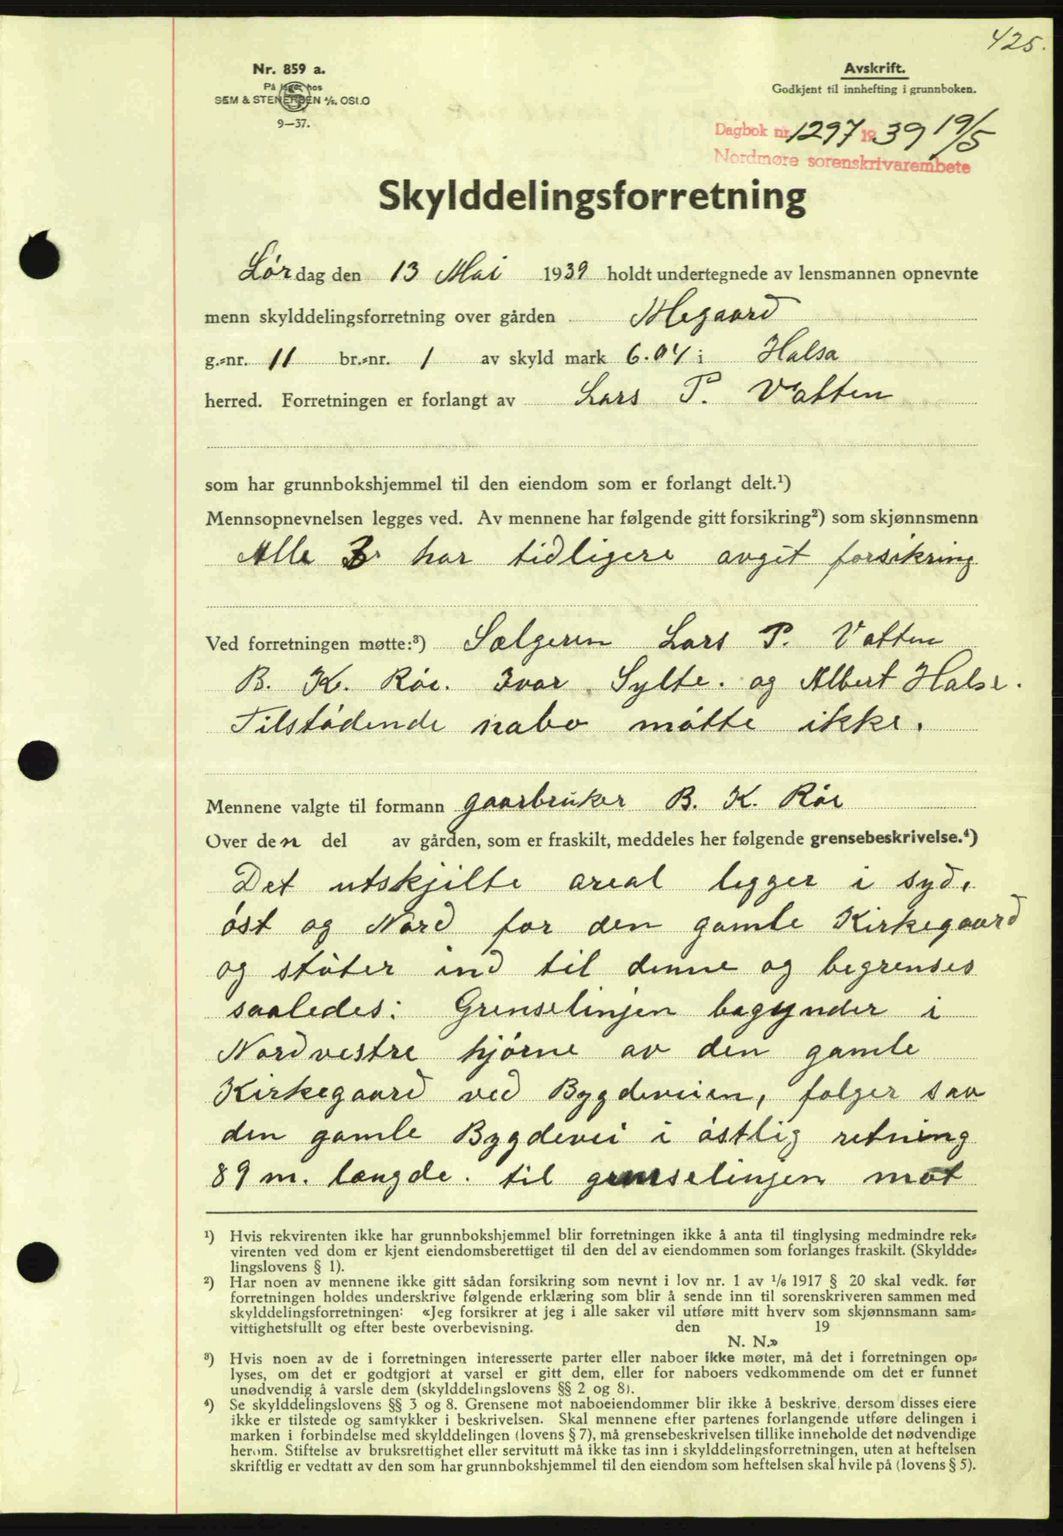 425.
Nr. 859 a.
På lager hos
SEM & STENERSEN A/S. OSLO
9—37.
Avskrift.
Godkjent til innhefting i grunnboken.
Dagbok nr. 1297 1939 19/5
Nordmøre sorenskrivarembete
Skylddelingsforretning
Lørdag den 13 Mai 1939 holdt undertegnede av lensmannen opnevnte
menn skylddelingsforretning over gården Megaard
g.-nr. 11 br.-nr. 1 av skyld mark 6.04 i Halsa
herred. Forretningen er forlangt av Lars P. Vatten
som har grunnbokshjemmel til den eiendom som er forlangt delt.¹)
Mennsopnevnelsen legges ved. Av mennene har følgende gitt forsikring²) som skjønnsmenn
Alle 3 har tidligere avgit forsikring
Ved forretningen møtte:³) Sælgeren Lars P. Vatten
B. K. Röe. Ivar Sylte. og Albert Halse.
Tilstödende nabo mötte ikke.
Mennene valgte til formann gaarbruker B. K. Röe
Over den del av gården, som er fraskilt, meddeles her følgende grensebeskrivelse.⁴)
Det utskjilte areal legger i syd,
öst og Nord for den gamle Kirkegaard
og stöter ind til denne og begrenses
saaledes: Grenselinjen begynder i
Nordvestre hjörne av den gamle
Kirkegaard ved Bygdeveien, følger saa
den gamle Bygdevei i östlig retning
89 m. længde. til grenselinjen mot
¹) Hvis rekvirenten ikke har grunnbokshjemmel blir forretningen ikke å anta til tinglysing medmindre rek-
virenten ved dom er kjent eiendomsberettiget til den del av eiendommen som forlanges fraskilt. (Skyldde-
lingslovens § 1).
²) Har noen av mennene ikke gitt sådan forsikring som nevnt i lov nr. 1 av 1/6 1917 § 20 skal vedk. før
forretningen holdes underskrive følgende erklæring som blir å sende inn til sorenskriveren sammen med
skylddelingsforretningen: «Jeg forsikrer at jeg i alle saker vil utføre mitt hverv som skjønnsmann sam-
vittighetsfullt og efter beste overbevisning. den 19
N. N.»
³) Hvis noen av de i forretningen interesserte parter eller naboer ikke møter, må det i forretningen op-
lyses, om det er godtgjort at varsel er gitt dem, eller for naboers vedkommende om det er funnet
unødvendig å varsle dem (skylddelingslovens §§ 2 og 8).
⁴) Se skylddelingslovens §§ 3 og 8. Grensene mot naboeiendommer blir ikke å beskrive, dersom disses eiere
ikke er tilstede og samtykker i beskrivelsen. Skal mennene efter partenes forlangende utføre delingen i
marken i forbindelse med skylddelingen (lovens § 7), må grensebeskrivelsen tillike inneholde det nødvendige
herom. Stiftelse av bruksrettighet eller servitutt må ikke tas inn i skylddelingsforretningen, uten at heftelsen
skriftlig er vedtatt av den som har grunnbokshjemmel til den eiendom som heftelsen skal hvile på (lovens § 5).